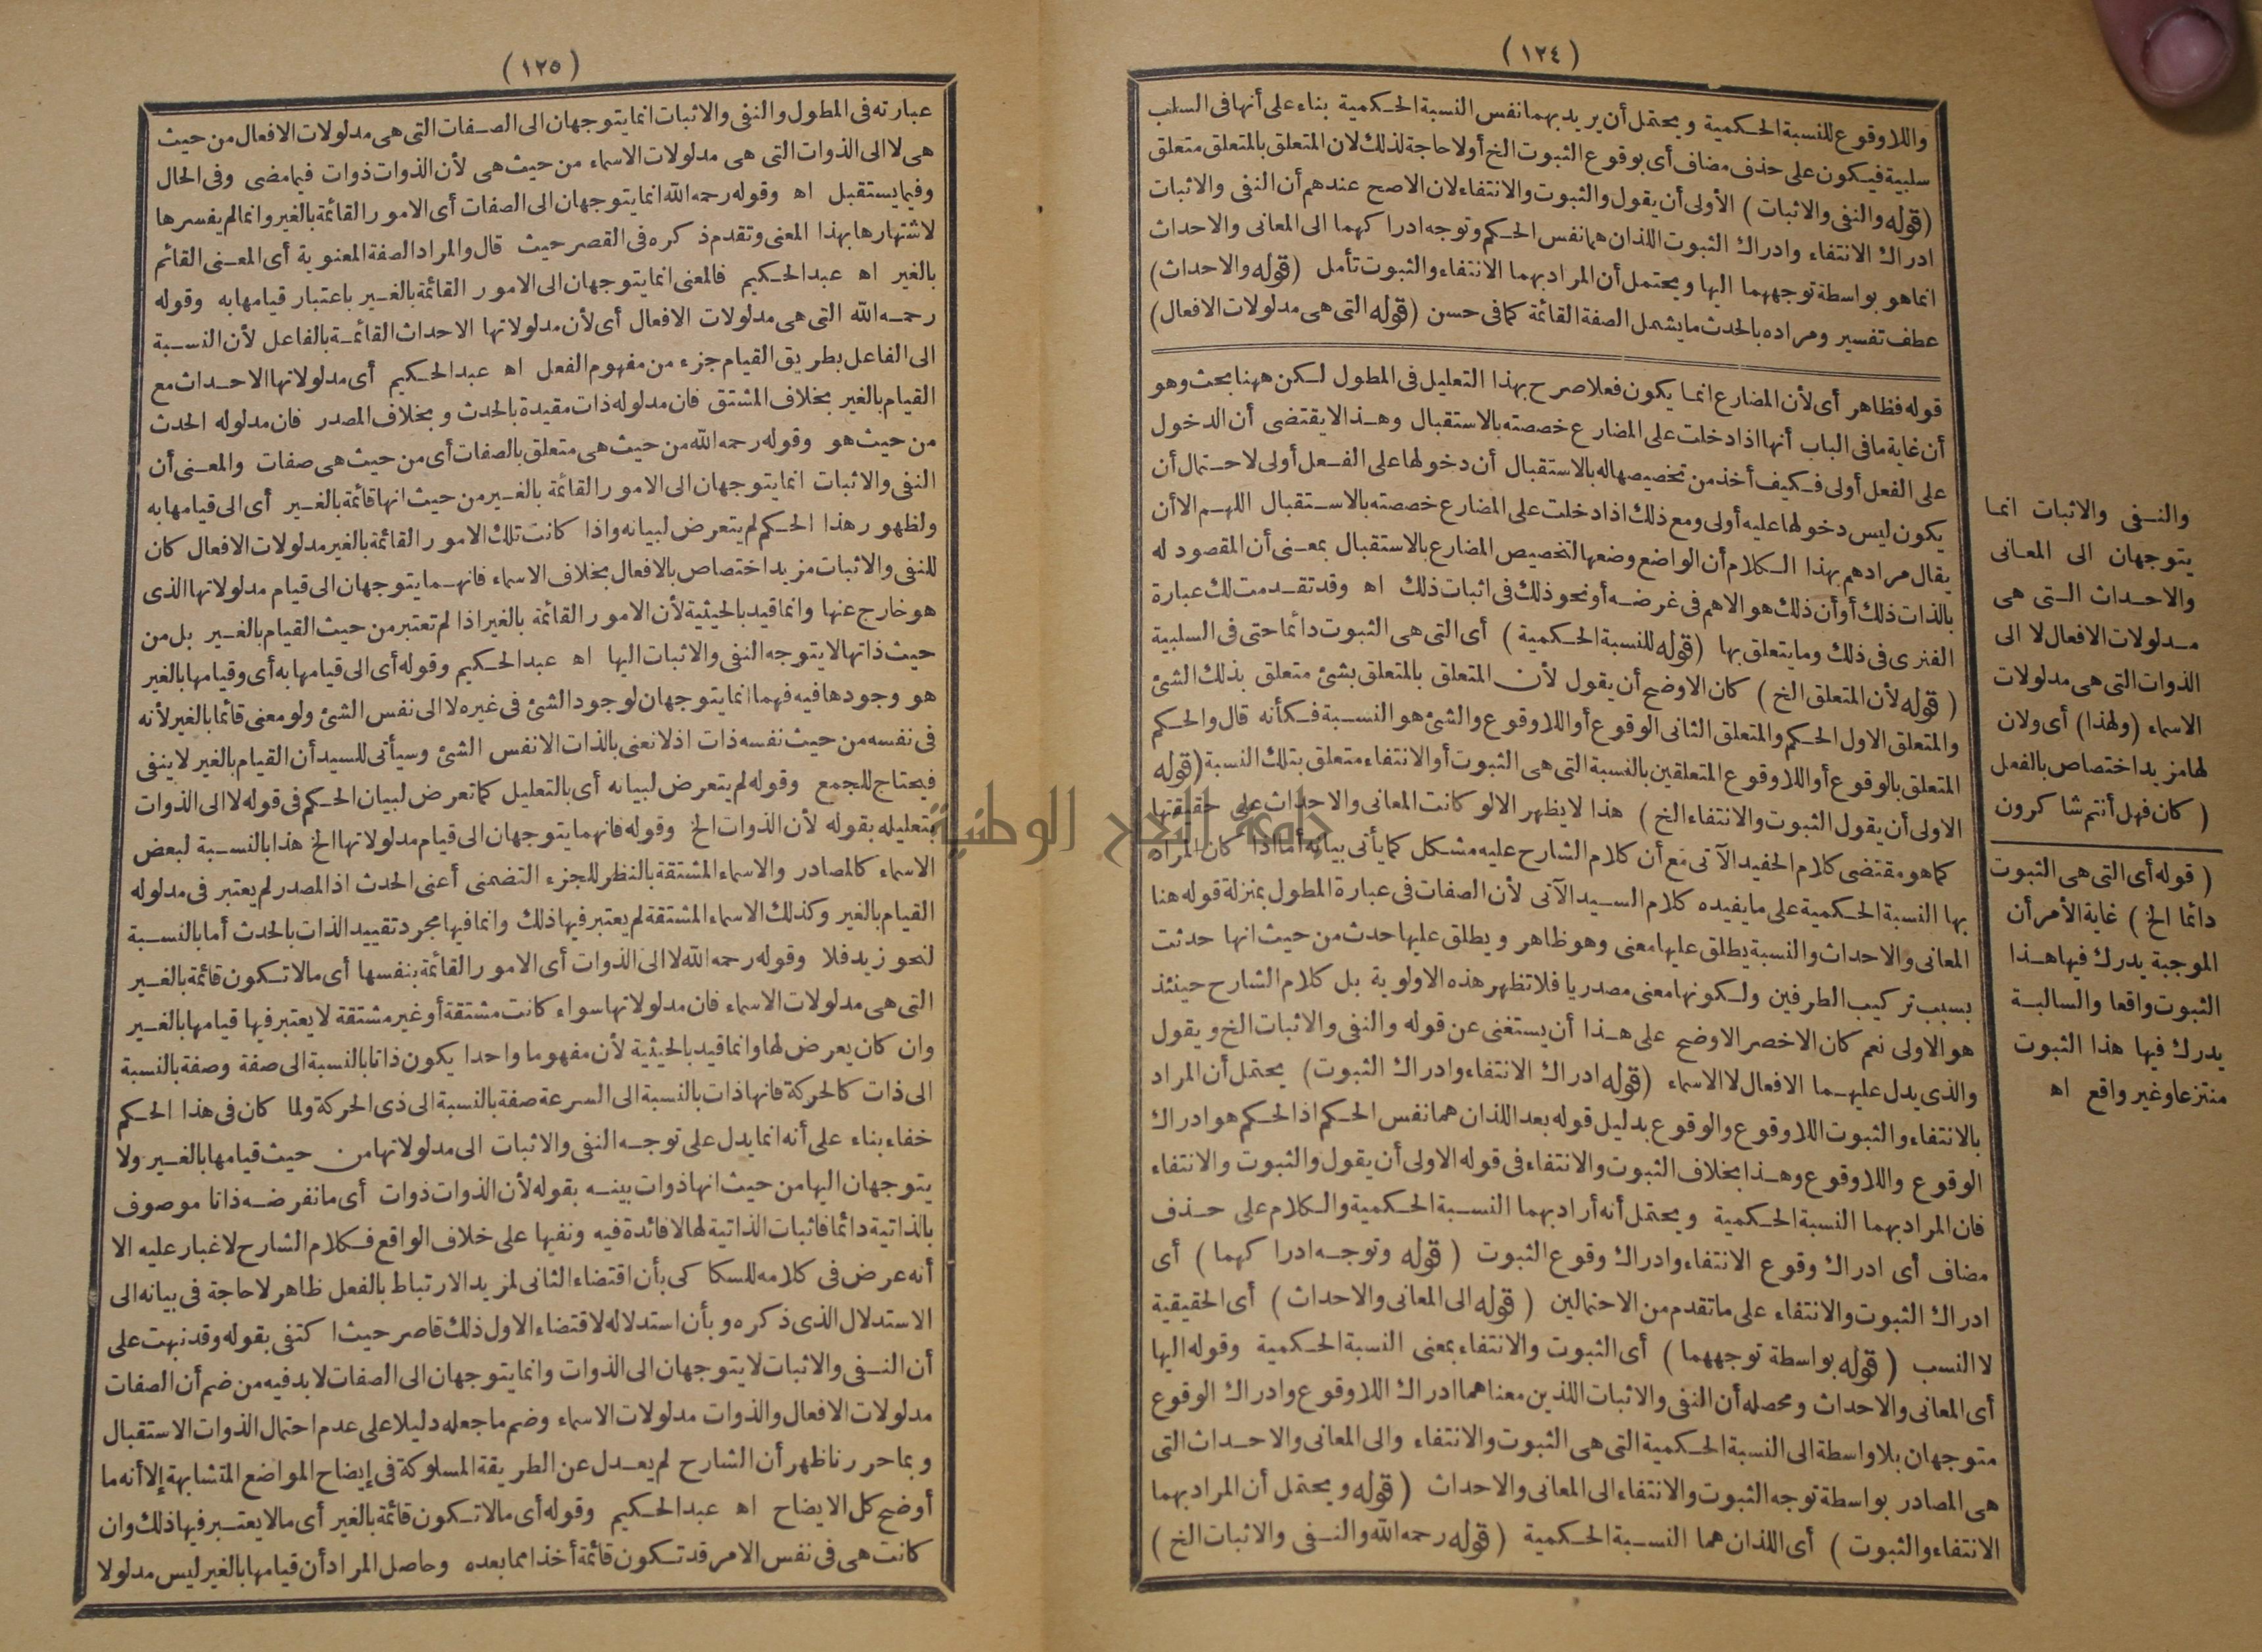 (١٢٤)
واللاوقوع للنسبة الحكمية ويحتمل أن يريد بهما نفس النسبة الحكمية بناء على أنها فى السلب
سلبية فيكون على حذف مضاف أى بوقوع الثبوت الخ أولا حاجة لذلك لان المتعلق بالمتعلق متعلق
(قوله والنفى والاثبات) الأولى أن يقول والثبوت والانتفاء لان الاصح عندهم أن النفى والاثبات
ادراك الانتفاء وادراك الثبوت اللذان هما نفس الحكم وتوجه ادراكهما الى المعانى والاحداث
انما هو بواسطة توجههما اليها ويحتمل أن المراد بهما الانتفاء والثبوت تأمل (قوله والاحداث)
عطف تفسير ومراده بالحدث ما يشمل الصفة القائمة كما فى حسن (قوله التى هى مدلولات الافعال)
قوله فظاهر أى لأن المضارع انما يكون فعلا صرح بهذا التعليل فى المطول لكن ههنا بحث وهو
أن غاية ما فى الباب أنها اذا دخلت على المضارع خصصته بالاستقبال وهذا لا يقتضى أن الدخول
على الفعل أولى فكيف أخذ من تخصيصها له بالاستقبال أن دخولها على الفعل أولى لاحتمال أن
يكون ليس دخولها عليه أولى ومع ذلك اذا دخلت على المضارع خصصته بالاستقبال اللهم الا أن
يقال مرادهم بهذا الكلام أن الواضع وضعها لتخصيص المضارع بالاستقبال بمعنى أن المقصود له
بالذات ذلك أو أن ذلك هو الاهم فى غرضه أو نحو ذلك فى اثبات ذلك اه وقد تقدمت لك عبارة
الفنرى فى ذلك وما يتعلق بها (قوله للنسبة الحكمية) أى التى هى الثبوت دائما حتى فى السلبية
(قوله لأن المتعلق الخ) كان الاوضح أن يقول لأن المتعلق بالمتعلق بشئ متعلق بذلك الشئ
والمتعلق الاول الحكم والمتعلق الثانى الوقوع أو اللاوقوع والشئ هو النسبة فكأنه قال والحكم
المتعلق بالوقوع أو اللاوقوع المتعلقين بالنسبة التى هى الثبوت أو الانتفاء متعلق بتلك النسبة (قوله
الاولى أن يقول الثبوت والانتفاء الخ) هذا لا يظهر الا لو كانت المعانى والاحداث على حقيقتها
كما هو مقتضى كلام الحفيد الآتى مع أن كلام الشارح عليه مشكل كما يأتى بيانه أما اذا كان المراد
بها النسبة الحكمية على ما يفيده كلام السيد الآتى لأن الصفات فى عبارة المطول بمنزلة قوله هنا
المعانى والاحداث والنسبة يطلق عليها معنى وهو ظاهر ويطلق عليها حدث من حيث انها حدثت
بسبب تركيب الطرفين ولكونها معنى مصدريا فلا تظهر هذه الاولوية بل كلام الشارح حينئذ
هو الاولى نعم كان الاخصر الاوضح على هذا أن يستغنى عن قوله والنفى والاثبات الخ ويقول
والذى يدل عليهما الافعال لا الاسماء (قوله ادراك الانتفاء وادراك الثبوت) يحتمل أن المراد
بالانتفاء والثبوت اللاوقوع والوقوع بدليل قوله بعد اللذان هما نفس الحكم اذ الحكم هو ادراك
الوقوع واللاوقوع وهذا بخلاف الثبوت والانتفاء فى قوله الاولى أن يقول والثبوت والانتفاء
فان المراد بهما النسبة الحكمية ويحتمل أنه أراد بهما النسبة الحكمية والكلام على حذف
مضاف أى ادراك وقوع الانتفاء وادراك وقوع الثبوت (قوله وتوجه ادراكهما) أى
ادراك الثبوت والانتفاء على ما تقدم من الاحتمالين (قوله الى المعانى والاحداث) أى الحقيقية
لا النسب (قوله بواسطة توجههما) أى الثبوت والانتفاء بمعنى النسبة الحكمية وقوله اليها
أى المعانى والاحداث ومحصله أن النفى والاثبات اللذين معناهما ادراك اللاوقوع وادراك الوقوع
متوجهان بلا واسطة الى النسبة الحكمية التى هى الثبوت والانتفاء والى المعانى والاحداث التى
هى المصادر بواسطة توجه الثبوت والانتفاء الى المعانى والاحداث (قوله ويحتمل أن المراد بهما
الانتفاء والثبوت) أى اللذان هما النسبة الحكمية (قوله رحمه الله والنفى والاثبات الخ)
والنفى والاثبات انما
يتوجهان الى المعانى
والاحداث التى هى
مدلولات الافعال لا الى
الذوات التى هى مدلولات
الاسماء (ولهذا) أى ولان
لها مزيد اختصاص بالفعل
(كان فهل أنتم شاكرون
(قوله أى التى هى الثبوت
دائما الخ) غاية الأمر أن
الموجبة يدرك فيها هذا
الثبوت واقعا والسالبة
يدرك فيها هذا الثبوت
منتزعا وغير واقع اه
(١٢٥)
عبارته فى المطول والنفى والاثبات انما يتوجهان الى الصفات التى هى مدلولات الافعال من حيث
هى لا الى الذوات التى هى مدلولات الاسماء من حيث هى لأن الذوات ذوات فيما مضى وفى الحال
وفيما يستقبل اه وقوله رحمه الله انما يتوجهان الى الصفات أى الامور القائمة بالغير وانما لم يفسرها
لاشتهارها بهذا المعنى وتقدم ذكره فى القصر حيث قال والمراد الصفة المعنوية أى المعنى القائم
بالغير اه عبد الحكيم فالمعنى انما يتوجهان الى الامور القائمة بالغير باعتبار قيامها به وقوله
رحمه الله التى هى مدلولات الافعال أى لأن مدلولاتها الاحداث القائمة بالفاعل لأن النسبة
الى الفاعل بطريق القيام جزء من مفهوم الفعل اه عبد الحكيم أى مدلولاتها الاحداث مع
القيام بالغير بخلاف المشتق فان مدلوله ذات مقيدة بالحدث وبخلاف المصدر فان مدلوله الحدث
من حيث هو وقوله رحمه الله من حيث هى متعلق بالصفات أى من حيث هى صفات والمعنى أن
النفى والاثبات انما يتوجهان الى الامور القائمة بالغير من حيث انها قائمة بالغير أى الى قيامها به
ولظهور هذا الحكم لم يتعرض لبيانه واذا كانت تلك الامور القائمة بالغير مدلولات الافعال كان
للنفى والاثبات مزيد اختصاص بالافعال بخلاف الاسماء فانهما يتوجهان الى قيام مدلولاتها الذى
هو خارج عنها وانما قيد بالحيثية لأن الامور القائمة بالغير اذا لم تعتبر من حيث القيام بالغير بل من
حيث ذاتها لا يتوجه النفى والاثبات اليها اه عبد الحكيم وقوله أى الى قيامها به أى وقيامها بالغير
هو وجودها فيه فهما انما يتوجهان لوجود الشئ فى غيره لا الى نفس الشئ ولو معنى قائما بالغير لأنه
فى نفسه من حيث نفسه ذات اذ لا نعنى بالذات الا نفس الشئ وسيأتى للسيد أن القيام بالغير لا ينفى
فيحتاج للجمع وقوله لم يتعرض لبيانه أى بالتعليل كما تعرض لبيان الحكم فى قوله لا الى الذوات
بتعليله بقوله لأن الذوات الخ وقوله فانهما يتوجهان الى قيام مدلولاتها الخ هذا بالنسبة لبعض
الاسماء كالمصادر والاسماء المشتقة بالنظر للجزء التضمنى أعنى الحدث اذ المصدر لم يعتبر فى مدلوله
القيام بالغير وكذلك الاسماء المشتقة لم يعتبر فيها ذلك وانما فيها مجرد تقييد الذات بالحدث أما بالنسبة
لنحو زيد فلا وقوله رحمه الله لا الى الذوات أى الامور القائمة بنفسها أى ما لا تكون قائمة بالغير
التى هى مدلولات الاسماء فان مدلولاتها سواء كانت مشتقة أو غير مشتقة لا يعتبر فيها قيامها بالغير
وان كان يعرض لها وانما قيد بالحيثية لأن مفهوما واحدا يكون ذاتا بالنسبة الى صفة وصفة بالنسبة
الى ذات كالحركة فانها ذات بالنسبة الى السرعة صفة بالنسبة الى ذى الحركة ولما كان فى هذا الحكم
خفاء بناء على أنه انما يدل على توجه النفى والاثبات الى مدلولاتها من حيث قيامها بالغير ولا
يتوجهان اليها من حيث انها ذوات بينه بقوله لأن الذوات ذوات أى ما نفرضه ذاتا موصوف
بالذاتية دائما فاثبات الذاتية لها لا فائدة فيه ونفيها على خلاف الواقع فكلام الشارح لا غبار عليه الا
أنه عرض فى كلامه للسكاكى بأن اقتضاء الثانى لمزيد الارتباط بالفعل ظاهر لا حاجة فى بيانه الى
الاستدلال الذى ذكره وبأن استدلاله لاقتضاء الاول ذلك قاصر حيث اكتفى بقوله وقد نبهت على
أن النفى والاثبات لا يتوجهان الى الذوات وانما يتوجهان الى الصفات لا بد فيه من ضم أن الصفات
مدلولات الافعال والذوات مدلولات الاسماء وضم ما جعله دليلا على عدم احتمال الذوات الاستقبال
وبما حررنا ظهر أن الشارح لم يعدل عن الطريقة المسلوكة فى إيضاح المواضع المتشابهة إلا أنه ما
أوضح كل الايضاح اه عبد الحكيم وقوله أى ما لا تكون قائمة بالغير أى ما لا يعتبر فيها ذلك وان
كانت هى فى نفس الامر قد تكون قائمة أخذا مما بعده وحاصل المراد أن قيامها بالغير ليس مدلولا
جامعة النجاح الوطنية